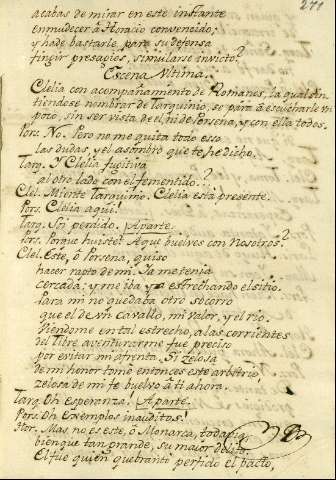 271
acabas de mirar en este instante
enmudecer à Horacio convencido;
y hade bastarle, para su defensa
fingir presagios, simularse invicto?
Escena Vltima.
Clelia con acompañamiento de Romanos, la qual sin-
tiendose nombrar de Tarquinio, se para â escucharle un
pozo, sin ser vista de el, ni de Porsena, y con ella todos.
Pors. No. Pero no me quita todo esso
las dudas, y el asombro que te he dicho.
Tarq. Y Clelia fugitiva
al otro lado con el fementido...
Clel. Miente Tarquino. Clelia està presente.
Pors. Clelia aqui!
Tarq. Soi perdido. Aparte.
Pors. Porque huiste? A que buelves con Nosotros?
Clel. Este, ô Porsena, quiso
hacer rapto de mi. Ya me tenia
cercada; y me iba ya estrechando el sitio.
Para mi no quedaba otro socorro
que el de vn cavallo, mi valor, y el rio.
Viendome en tal estrecho, a las corrientes
del Tibre aventurarme fue preciso
por evitar mi afrenta. Si zelosa
de mi honor tomè entonces este arbitrio,
zelosa de mi fe buelvo â ti ahora.
Tarq. Oh esperanza! Aparte.
Pors. Oh Exemplos inauditos!
Hor. Mas, no es este, ô Monarca, todavia
bien que tan grande, su maior delito.
El fue quien quebrantò perfido el pacto,